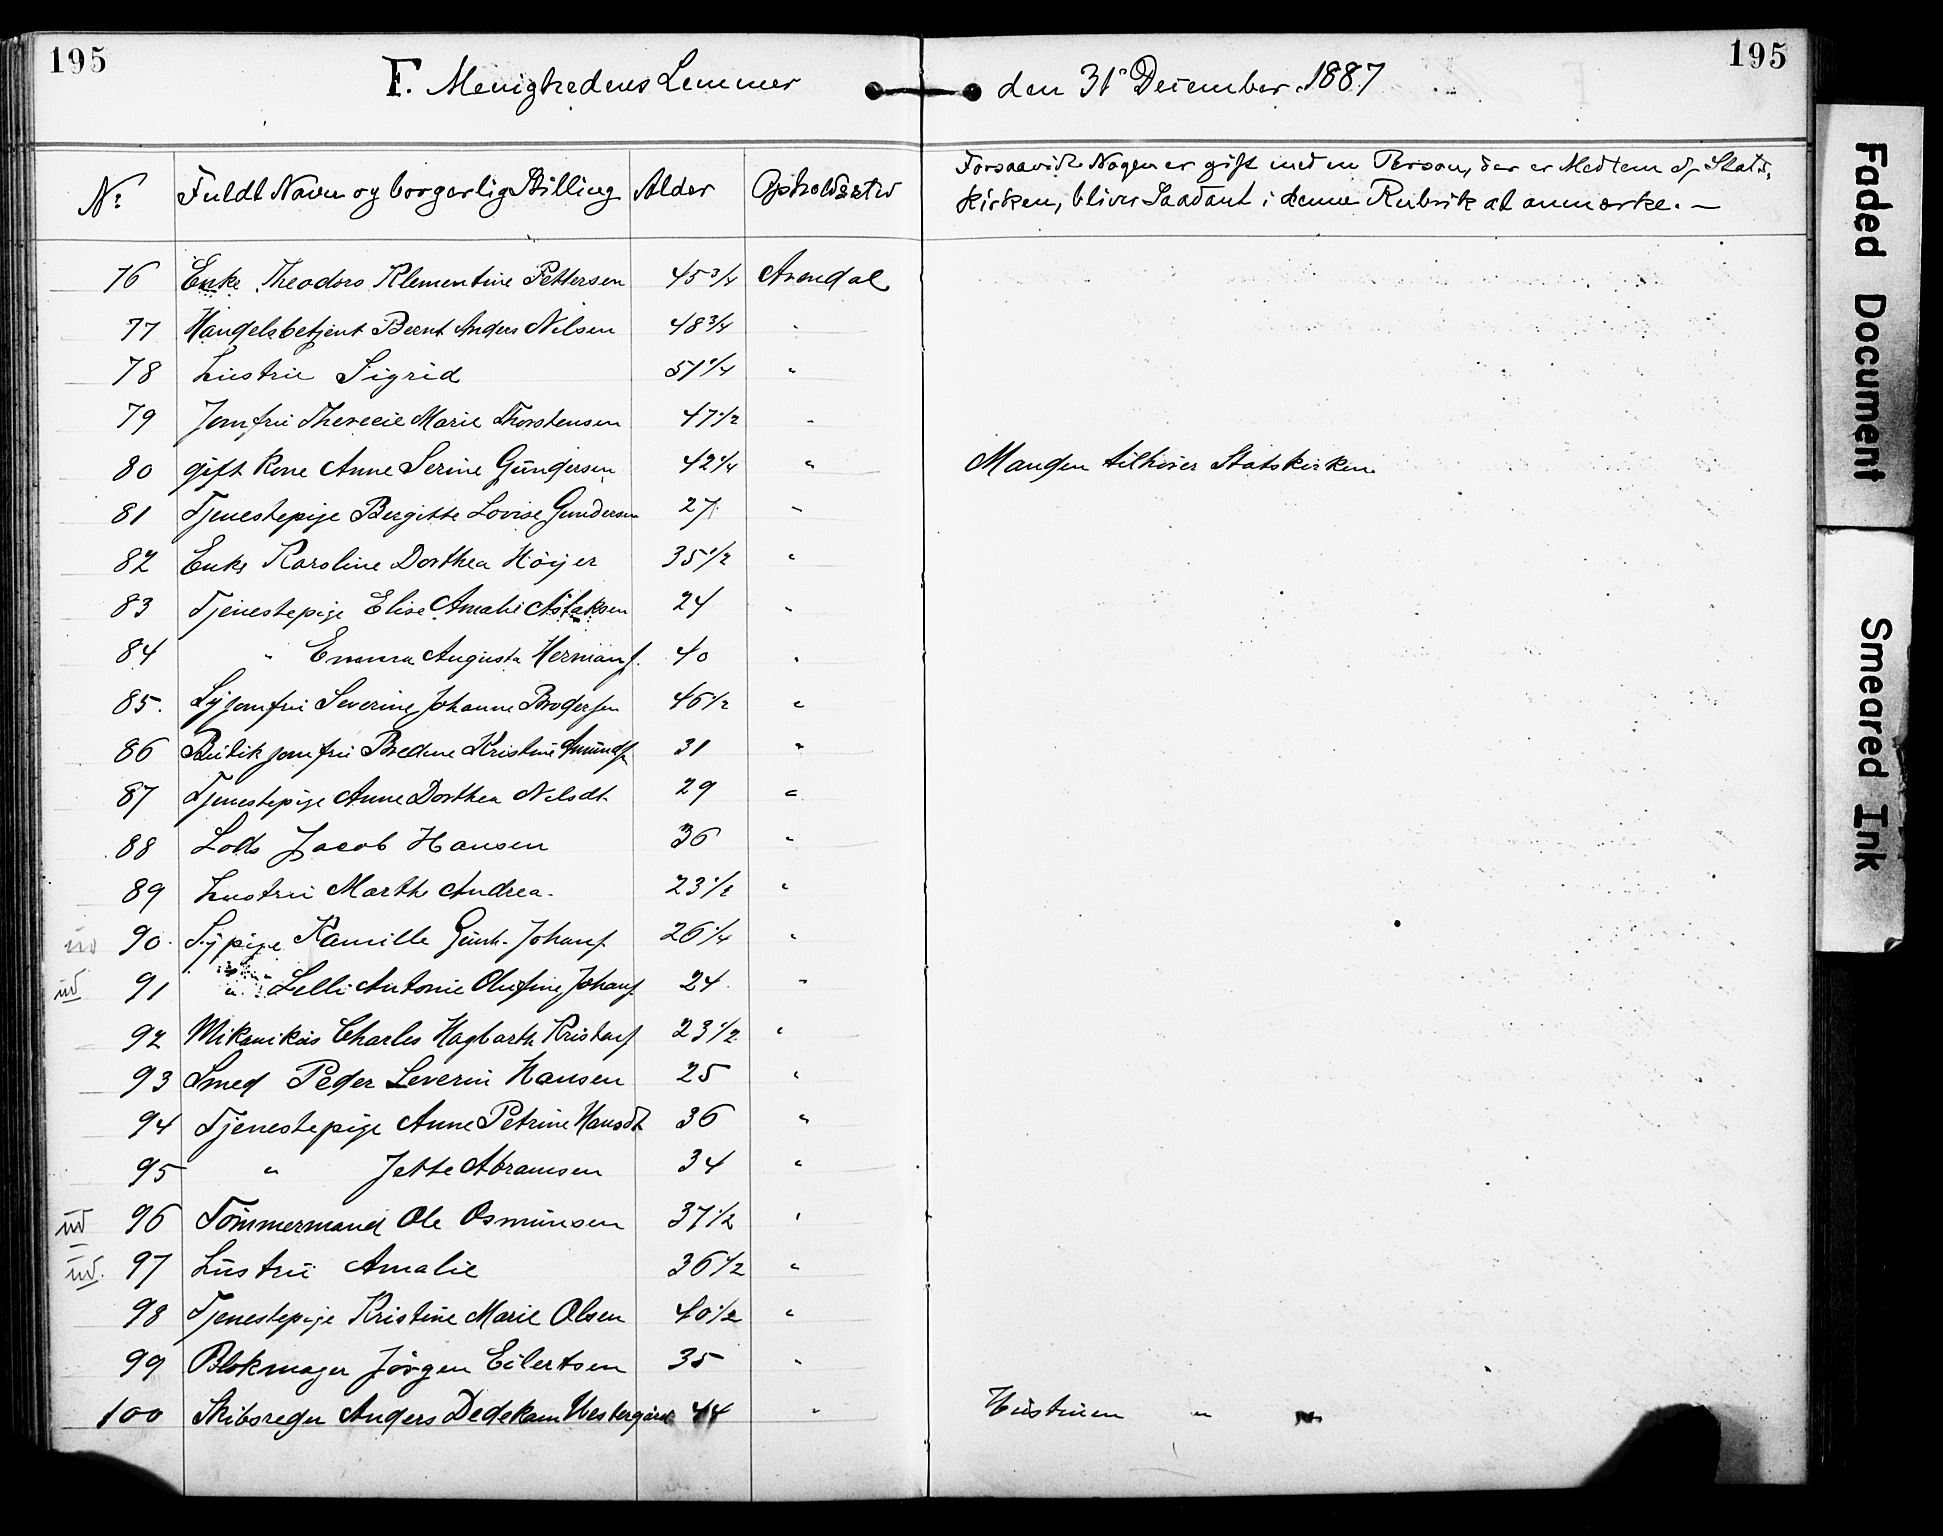 195
195
F. Menighedens Lemmer den 31' December 1887
No Fuldt Navn og borgerlig Stilling Alder Opholdssted Forsaavidt Nogen er gift med en Person, der er Medlem af Stats-
kirken, bliver Saadant i denne Rubrik at anmærke. —
76 Enke Theodora Klementine Pettersen 45 3/4 Arendal
77 Handelsbetjent Bernt Anders Nilsen 48 3/4 "
78 Hustru Sigrid 51 1/4 "
79 Jomfru Therecie Marie Thorstensen 47 1/2 "
80 gift Kone Anne Serine Gundersen 42 1/4 " Manden tilhører Statskirken
81 Tjenestepige Bergitte Lovise Gundersen 27 "
82 Enke Karoline Dorthea Höijer 35 1/2 "
83 Tjenestepige Elise Amalie Aslaksen 24 "
84 " Emma Augusta Hermans. 40 "
85. Syjomfru Severine Johanne Brodersen 46 1/2 "
86 Butikjomfru Bredine Kristine Amunds. 31 "
87 Tjenestepige Anne Dorthea Nilsdt. 29 "
88 Lods Jacob Hansen 36 "
89 Hustru Marthe Andrea. 23 1/2 "
ud 90. Sypige Kamille Gunh. Johans. 26 1/4 "
ud 91 " Lelli Antonie Olufine Johans. 24 "
92 Mikanikus Charles Hagbarth Kristans. 23 1/2 "
93 Smed Peder Severin Hansen 25 "
94 Tjenestepige Anne Petrine Hansdt 36 "
95 " Jette Abramsen 34 "
ud 96 Tömmermand Ole Osmunsen 37 1/2 "
ud. 97 Hustru Amalie 36 1/2 "
98 Tjenestepige Kristine Marie Olsen 40 1/2 "
99 Blokmager Jörgen Eilertsen 35 "
100 Skibsreder Anders Dedekam Westergård 44 " Hustruen " "
Faded Document
Smeared Ink